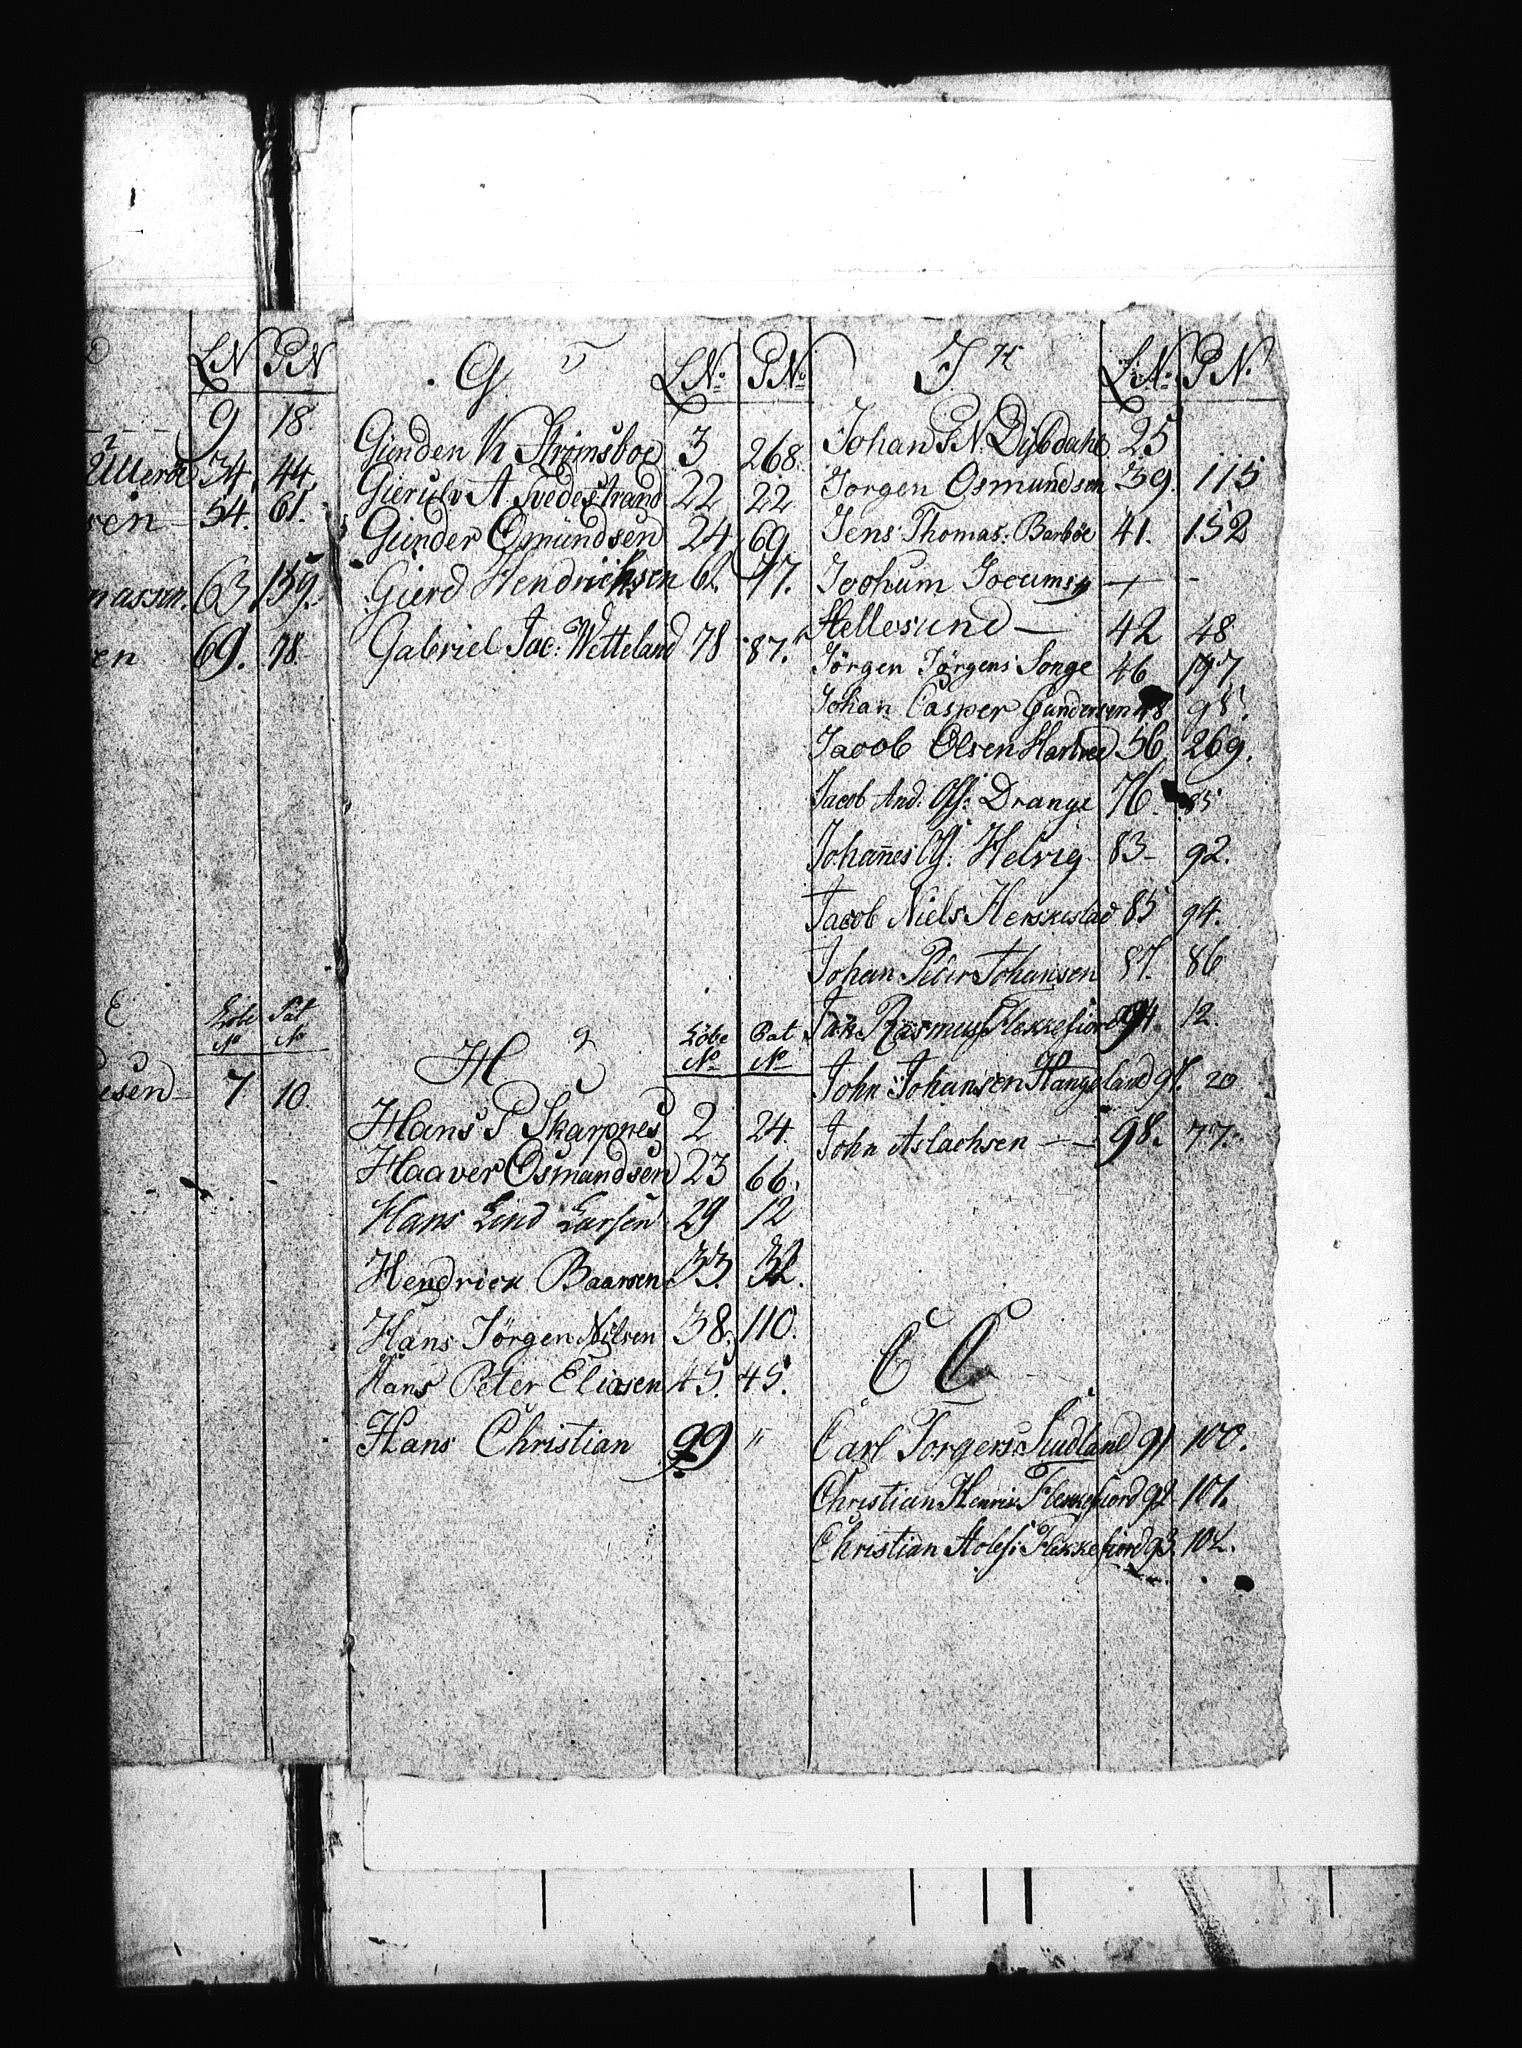 LN PN
9 18.
34. 44.
54. 61.
nassen. 63 159.
69. 78
E Løbe No Pat No
esen 7. 10.
G. LNo. PNo.
Gunder K Strømsboe 3 268.
Gierulv A. Svedestrand 22 22
Gunder Osmundsen 24 69
Gierd Hendrichsen 62. 77.
Gabriel Jac: Wetteland 78 87.
H Løbe No Pat No
Hans P Skarpnes 2 24.
Haaver Osmundsen 23 66.
Hans Lind Larsen 29 12
Hendrick Baarsen 33. 32.
Hans Jørgen Nilsen 38. 110.
Hans Peter Eliasen 45. 45.
Hans Christian 99 "
J LNo. PN.
Johan P. N. Dybdahl 25
Jørgen Osmundsen 39. 115
Jens Thomas: Barbøe 41. 152
Jochum Jocumsn
Hellesund — 42 48
Jørgen Jørgens: Songe 46 197
Johan Casper Gundersen 48 98.
Jacob Olsen 56 269.
Jacob And: Drange 76. 85
Johannes Helvig 83 - 92.
Jacob Niels: 85 94.
Johan Peter Johansen 87. 86
Rasmus: Flekkefiord 94. 12.
John Johansen 20
John Aslachsen — 98. 77.
C C
Carl Torgers: Sudland 91 100.
Christian Henrik: Flekkefiord 92 101.
Christian Flekkefiord 93. 102.